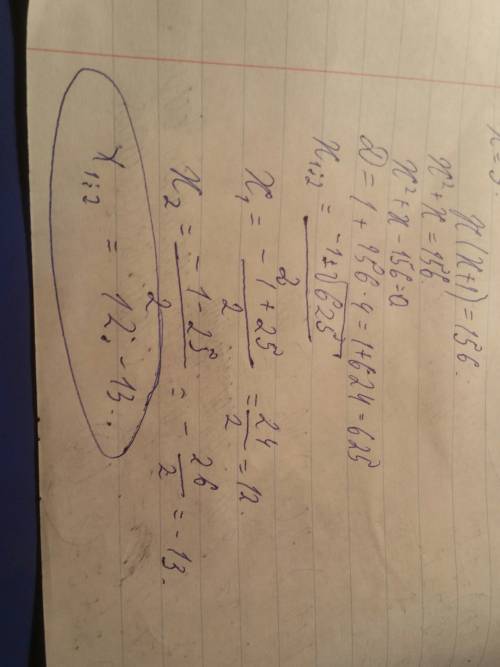 x(x+1)=156.
x²+x=156.
x²+x-156=0
D=1+156·4=1+624=625
x₁;₂ = (-1±√625)/2
x₁ = (-1+25)/2 = 24/2 = 12.
x₂ = (-1-25)/2 = -26/2 = -13.
x₁;₂ = 12; -13.